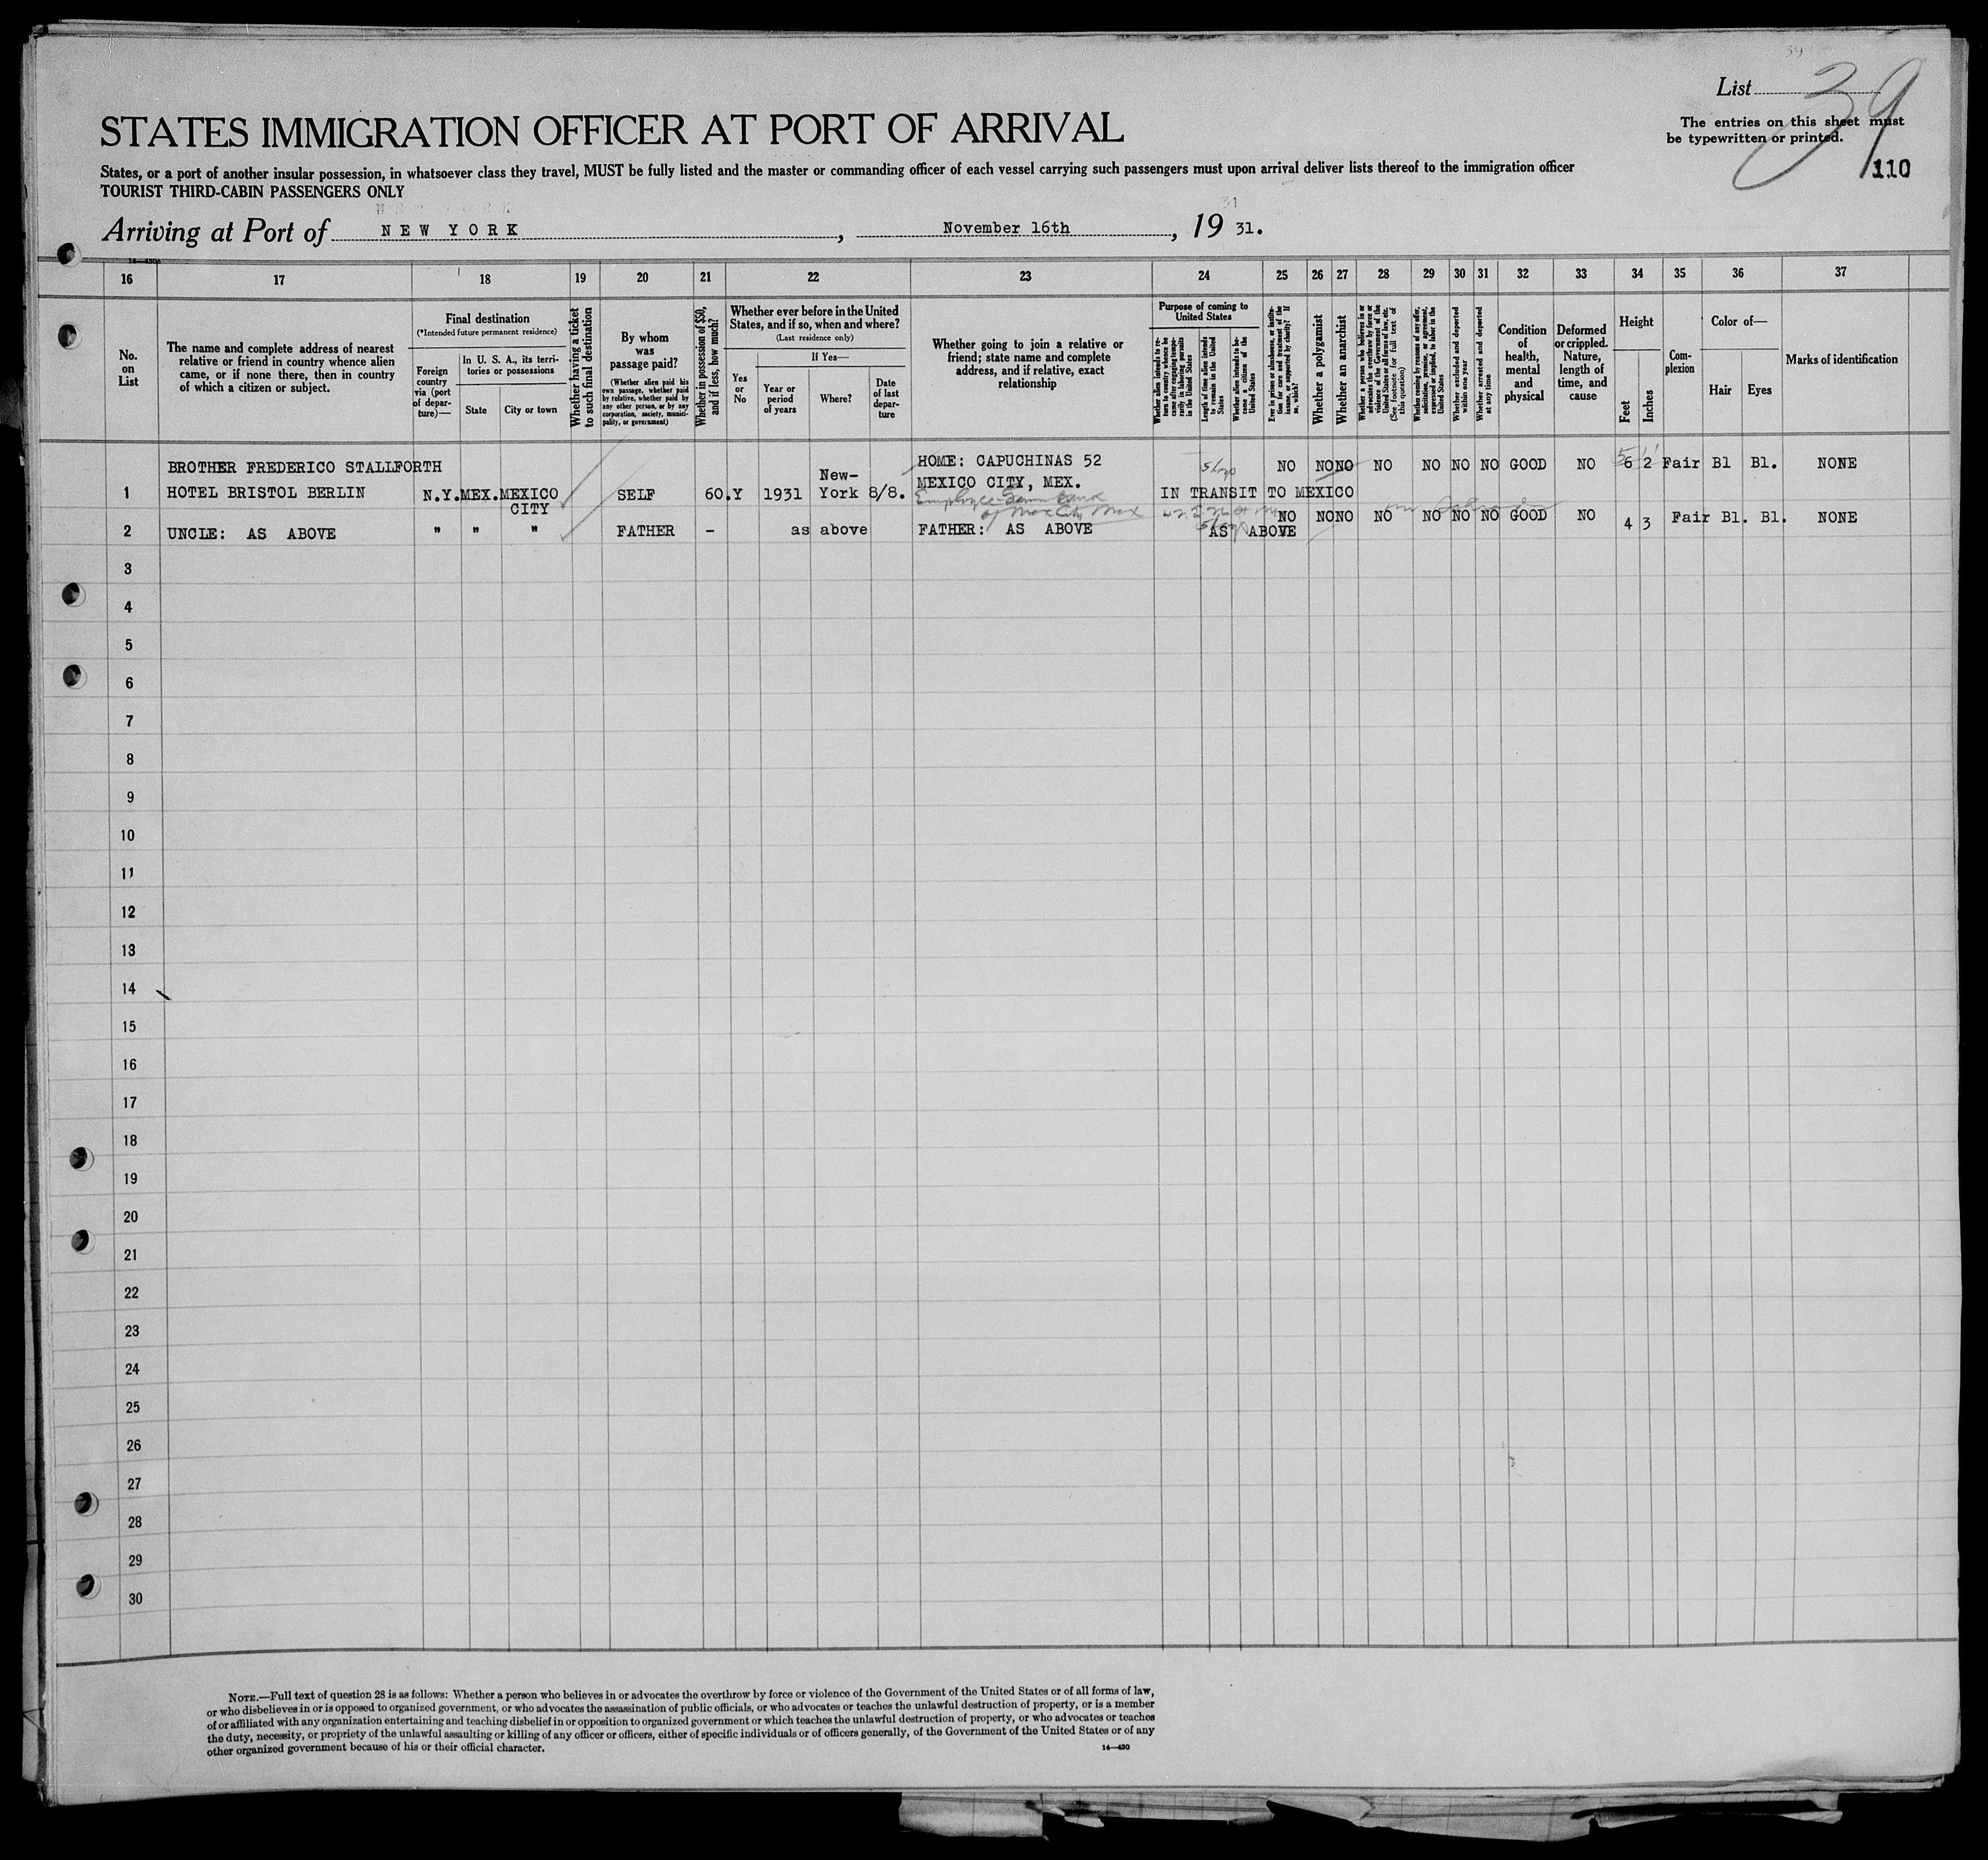 34
List 39
The entries on this sheet must
be typewritten or printed.
110
STATES IMMIGRATION OFFICER AT PORT OF ARRIVAL
States, or a port of another insular possession, in whatsoever class they travel, MUST be fully listed and the master or commanding officer of each vessel carrying such passengers must upon arrival deliver lists thereof to the immigration officer
TOURIST THIRD-CABIN PASSENGERS ONLY
Arriving at Port of NEW YORK, November 16th, 19 31.
14—430
16 17 18 19 20 21 22 23 24 25 26 27 28 29 30 31 32 33 34 35 36 37
No. on List
The name and complete address of nearest
relative or friend in country whence alien
came, or if none there, then in country
of which a citizen or subject.
Final destination
(*Intended future permanent residence)
Foreign country via (port of departure)—
In U. S. A., its territories or possessions
State
City or town
Whether having a ticket to such final destination
By whom was passage paid?
(Whether alien paid his own passage, whether paid by relative, whether paid by any other person, or by any corporation, society, municipality, or government)
Whether in possession of $50, and if less, how much?
Whether ever before in the United
States, and if so, when and where?
(Last residence only)
Yes or No
If Yes—
Year or period of years
Where?
Date of last departure
Whether going to join a relative or
friend; state name and complete
address, and if relative, exact
relationship
Purpose of coming to United States
Whether alien intends to return to country whence he came after engaging temporarily in laboring pursuits in the United States
Length of time alien intends to remain in the United States
Whether alien intends to become a citizen of the United States
Ever in prison or almshouse, or institution for care and treatment of the insane, or supported by charity? If so, which?
Whether a polygamist
Whether an anarchist
Whether a person who believes in or advocates the overthrow by force or violence of the Government of the United States or all forms of law, etc. (See footnote for full text of this question)
Whether coming by reasons of any offer, solicitation, promise, or agreement, expressed or implied, to labor in the United States
Whether excluded and deported within one year
Whether arrested and deported at any time
Condition of health, mental and physical
Deformed or crippled. Nature, length of time, and cause
Height
Feet
Inches
Complexion
Color of—
Hair
Eyes
Marks of identification
1 BROTHER FREDERICO STALLFORTH
HOTEL BRISTOL BERLIN N.Y.MEX.MEXICO CITY SELF 60.Y 1931 New-York 8/8.
HOME: CAPUCHINAS 52
MEXICO CITY, MEX.
Employee
of Mex City Mex
5
IN TRANSIT TO MEXICO
NO NO NO NO NO NO NO GOOD NO 5 6 2 Fair Bl Bl. NONE
2 UNCLE: AS ABOVE " " " FATHER - as above FATHER: AS ABOVE AS ABOVE NO NO NO NO NO NO NO GOOD NO 4 3 Fair Bl. Bl. NONE
3
4
5
6
7
8
9
10
11
12
13
14
15
16
17
18
19
20
21
22
23
24
25
26
27
28
29
30
NOTE.—Full text of question 28 is as follows: Whether a person who believes in or advocates the overthrow by force or violence of the Government of the United States or of all forms of law,
or who disbelieves in or is opposed to organized government, or who advocates the assassination of public officials, or who advocates or teaches the unlawful destruction of property, or is a member
of or affiliated with any organization entertaining and teaching disbelief in or opposition to organized government or which teaches the unlawful destruction of property, or who advocates or teaches
the duty, necessity, or propriety of the unlawful assaulting or killing of any officer or officers, either of specific individuals or of officers generally, of the Government of the United States or of any
other organized government because of his or their official character.
14—430